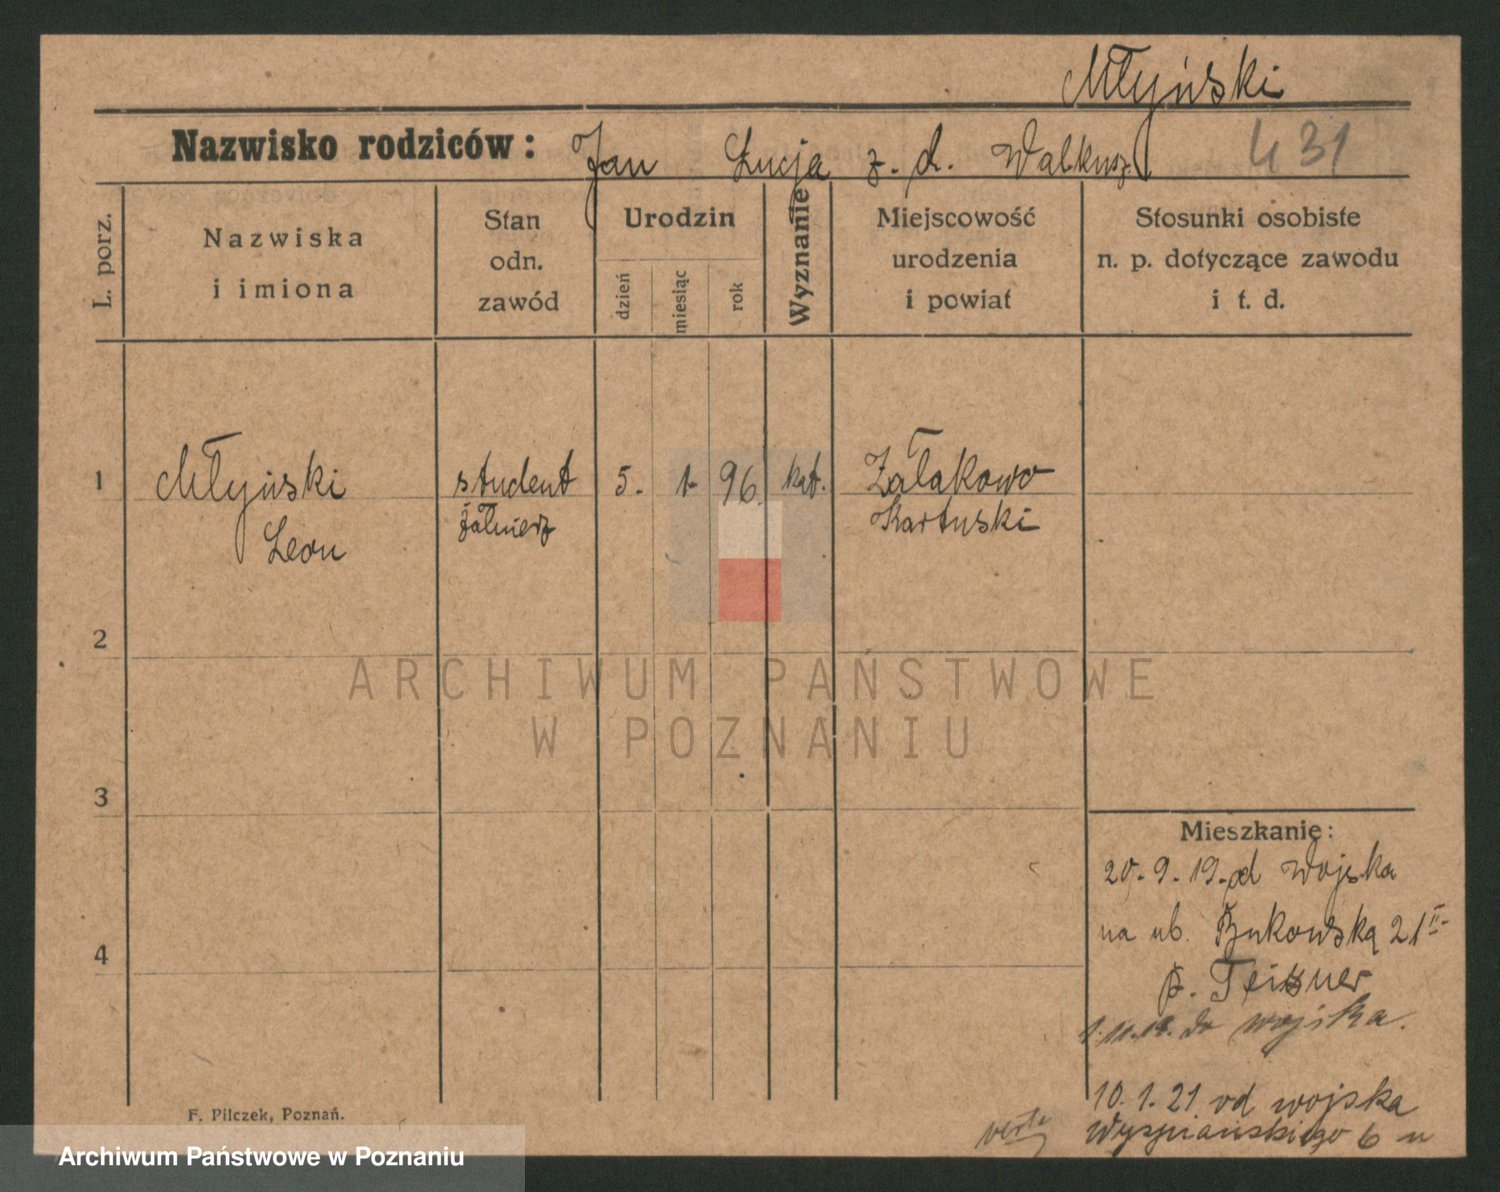 Młyński
Nazwisko rodziców: Jan Łucja z. d. Walkusz 431
L. porz.
Nazwiska
i imiona
Stan
odn.
zawód
Urodzin
dzień
miesiąc
rok
Wyznanie
Miejscowość
urodzenia
i powiat
Stosunki osobiste
n. p. dotyczące zawodu
i t. d.
1 Młyński student 5. 1. 96. kat. Załakowo
Leon żołnierz Kartuski
2
ARCHIWUM PAŃSTWOWE
W POZNANIU
3
Mieszkanie:
20.9.19. od Wojska
na ul. Bukowską 21 II
p. Teisner
1.11.19. do wojska.
4
10.1.21. od wojska
Wyspiańskiego 6
verte
F. Pilczek, Poznań.
Archiwum Państwowe w Poznaniu